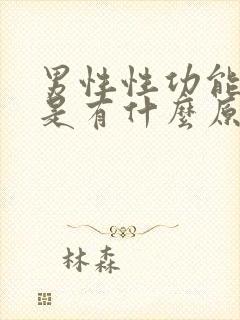 男性性功能
是有什麼原
林森